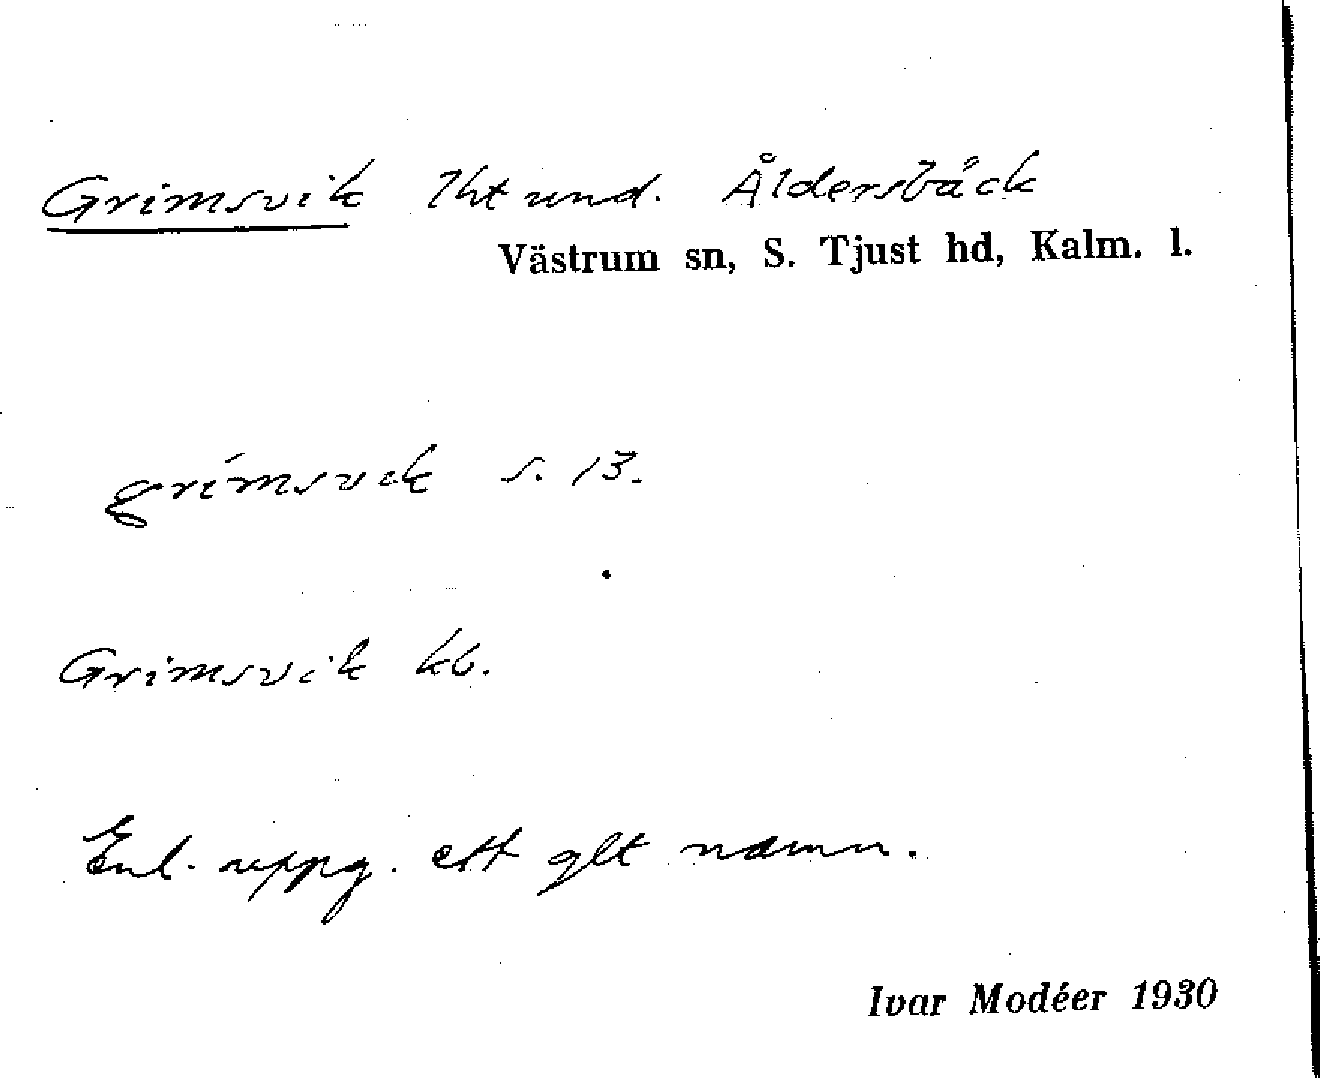 Grimsvik lht und. Åldersbäck
Västrum sn, S. Tjust hd, Kalm. l.
grimsvik s. 13.
Grimsvik kb.
Enl. uppg. ett glt namn.
Ivar Modéer 1930